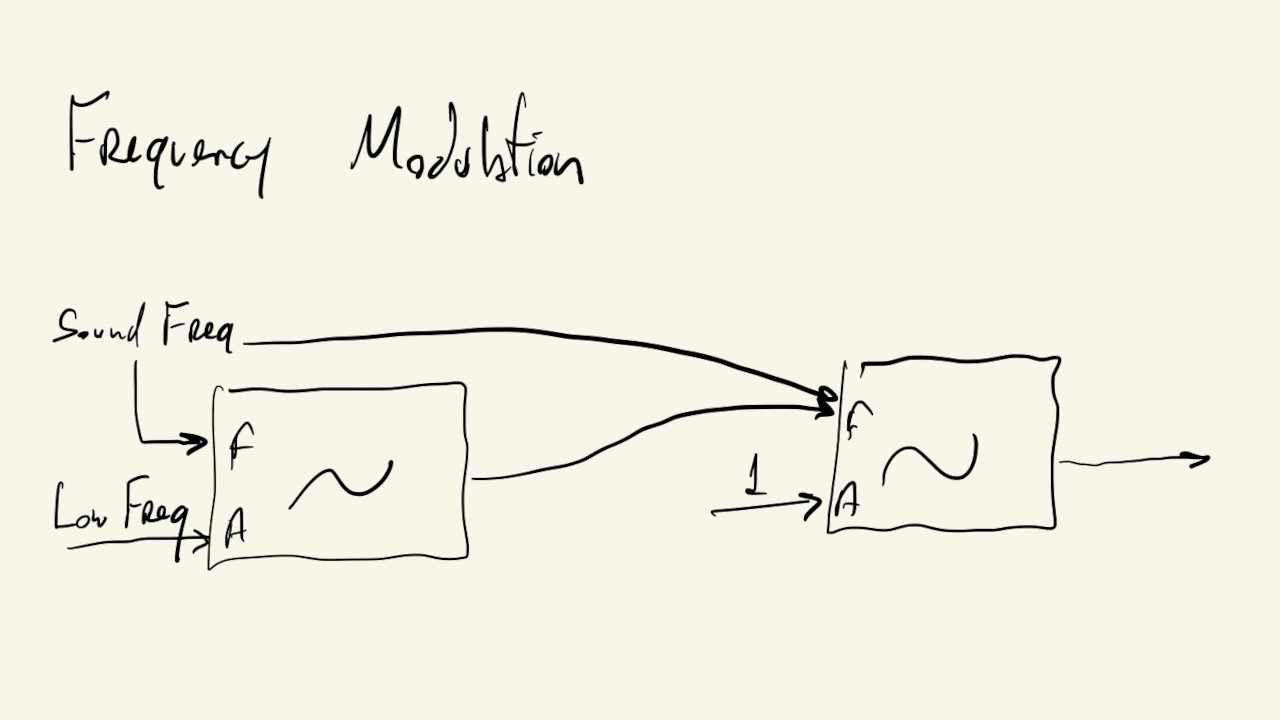 Frequency Modulation
Sound Freq
F
F
Low Freq
A
1
A